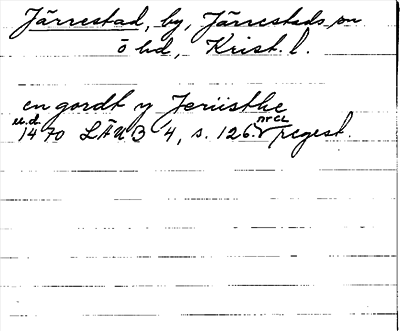 Järrestad, by, Järrestads sn
ö hd, Krist. l.
en gordt y Jeriisthe
u.d.
1470 LÄUB 4, s. 126 regest.